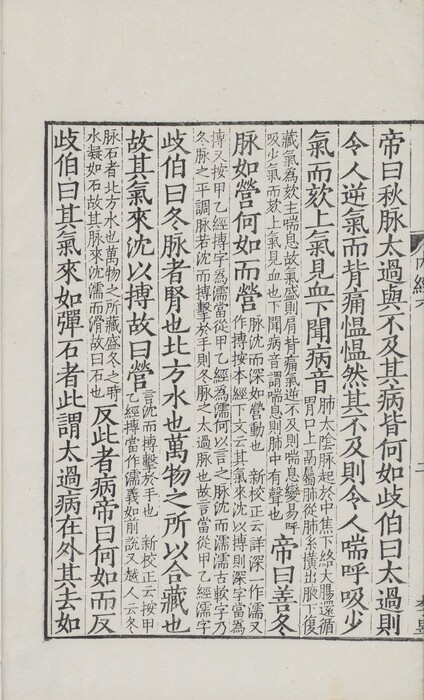 帝曰秋脉太過與不及其病皆何如歧伯曰太過則
令人逆氣而背痛慍慍然其不及則令人喘呼吸少
氣而欬上氣見血下聞病音肺太陰脉起於中焦下絡大腸還循胃口上鬲屬肺從肺系橫出腋下復
藏氣為欬主喘息故氣盛則肩背痛氣逆不及則喘息變易呼吸少氣而欬上氣見血也下聞病音謂喘息則肺中有聲也帝曰善冬
脉如營何如而營脉沈而深如營動也 新校正云詳深一作濡又作搏按本經下文云其氣來沈以搏則深字當為
搏又按甲乙經搏字為濡當從甲乙經為濡何以言之脉沈而濡濡古軟字乃冬脉之平調脉若沈而搏擊於手則冬脉之太過脉也故言當從甲乙經濡字
歧伯曰冬脉者腎也北方水也萬物之所以合藏也
故其氣來沈以搏故曰營言沈而搏擊於手也 新校正云按甲乙經搏當作濡義如前說又越人云冬
脉石者北方水也萬物之所藏盛冬之時水凝如石故其脉來沈濡而滑故曰石也反此者病帝曰何如而反
歧伯曰其氣來如彈石者此謂太過病在外其去如